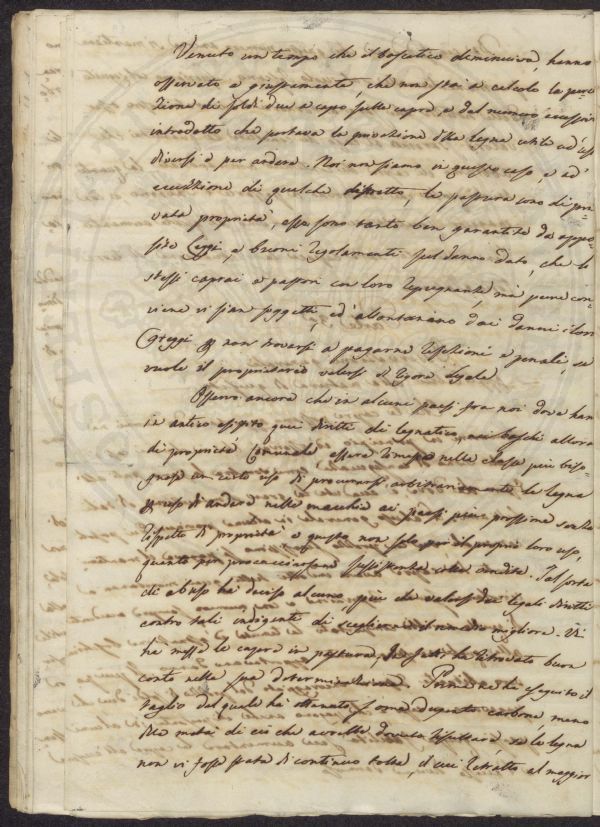 Venuto un tempo che il boscatico diminuiva, hanno
osservato e giustamente, che non stai a calcolo la per
zione di soldi due a capo sulle capre, e dal numero eccessivo
introdotto che portava la privazione della legna utile ad usi
diversi e per ardere. Noi non siamo in questo caso, e ad
eccezzione di qualche distretto, le pasture sono di pri
vata proprietà, esse sono tanto ben garantite da appo
site Leggi, e buoni regolamenti sul danno dato, che li
stessi caprai e pastori con loro repugnanza, ma pure con
viene vi sian soggetti, ed allontanino dai danni i loro
Greggi per non trovarsi a pagarne refezioni e penali, se
vuole il proprietario valersi di rigore legale
Osservo ancora che in alcuni paesi fra noi dove han
in antico esistito quei diritti di legnatico, nei boschi allora
di proprietà Comunale, essere rimasto nelle classe più biso
gnose un certo uso di procurarsi arbitrariamente le legna
per uso di ardere nelle macchie ai paesi più prossime senza
rispetto di proprietà e questo non solo per il proprio loro uso,
quanto per procacciarsene sussistenza colla vendita. Tal sorta
di abuso ha deciso alcuno, più che valersi dei legali diritti
contro tali indigenti di scegliere il rimedio migliore. Vi
ha messe le capre in pastura, ha ritrovato buon
conto nella sua determinazione. Poiché ne ha eseguito il
taglio del quale ha ottenuto some di carbone, meno
della metà di ciò che avrebbe dovuto resultare, se le legna
non vi fosse stata di continuo tolta, il cui retratto al maggior